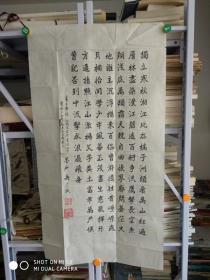 獨立寒秋湘江北去橘子洲頭看萬山紅遍
層林盡染漫江碧透百舸爭流鷹擊長空魚
翔淺底萬類霜天競自由悵寥廓問蒼茫大
地誰主沉浮攜來百侶曾游憶往昔崢嶸歲
月稠恰同學少年風華正茂書生意氣揮斥
方遒指點江山激揚文字糞土當年萬戶侯
曾記否到中流擊水浪遏飛舟